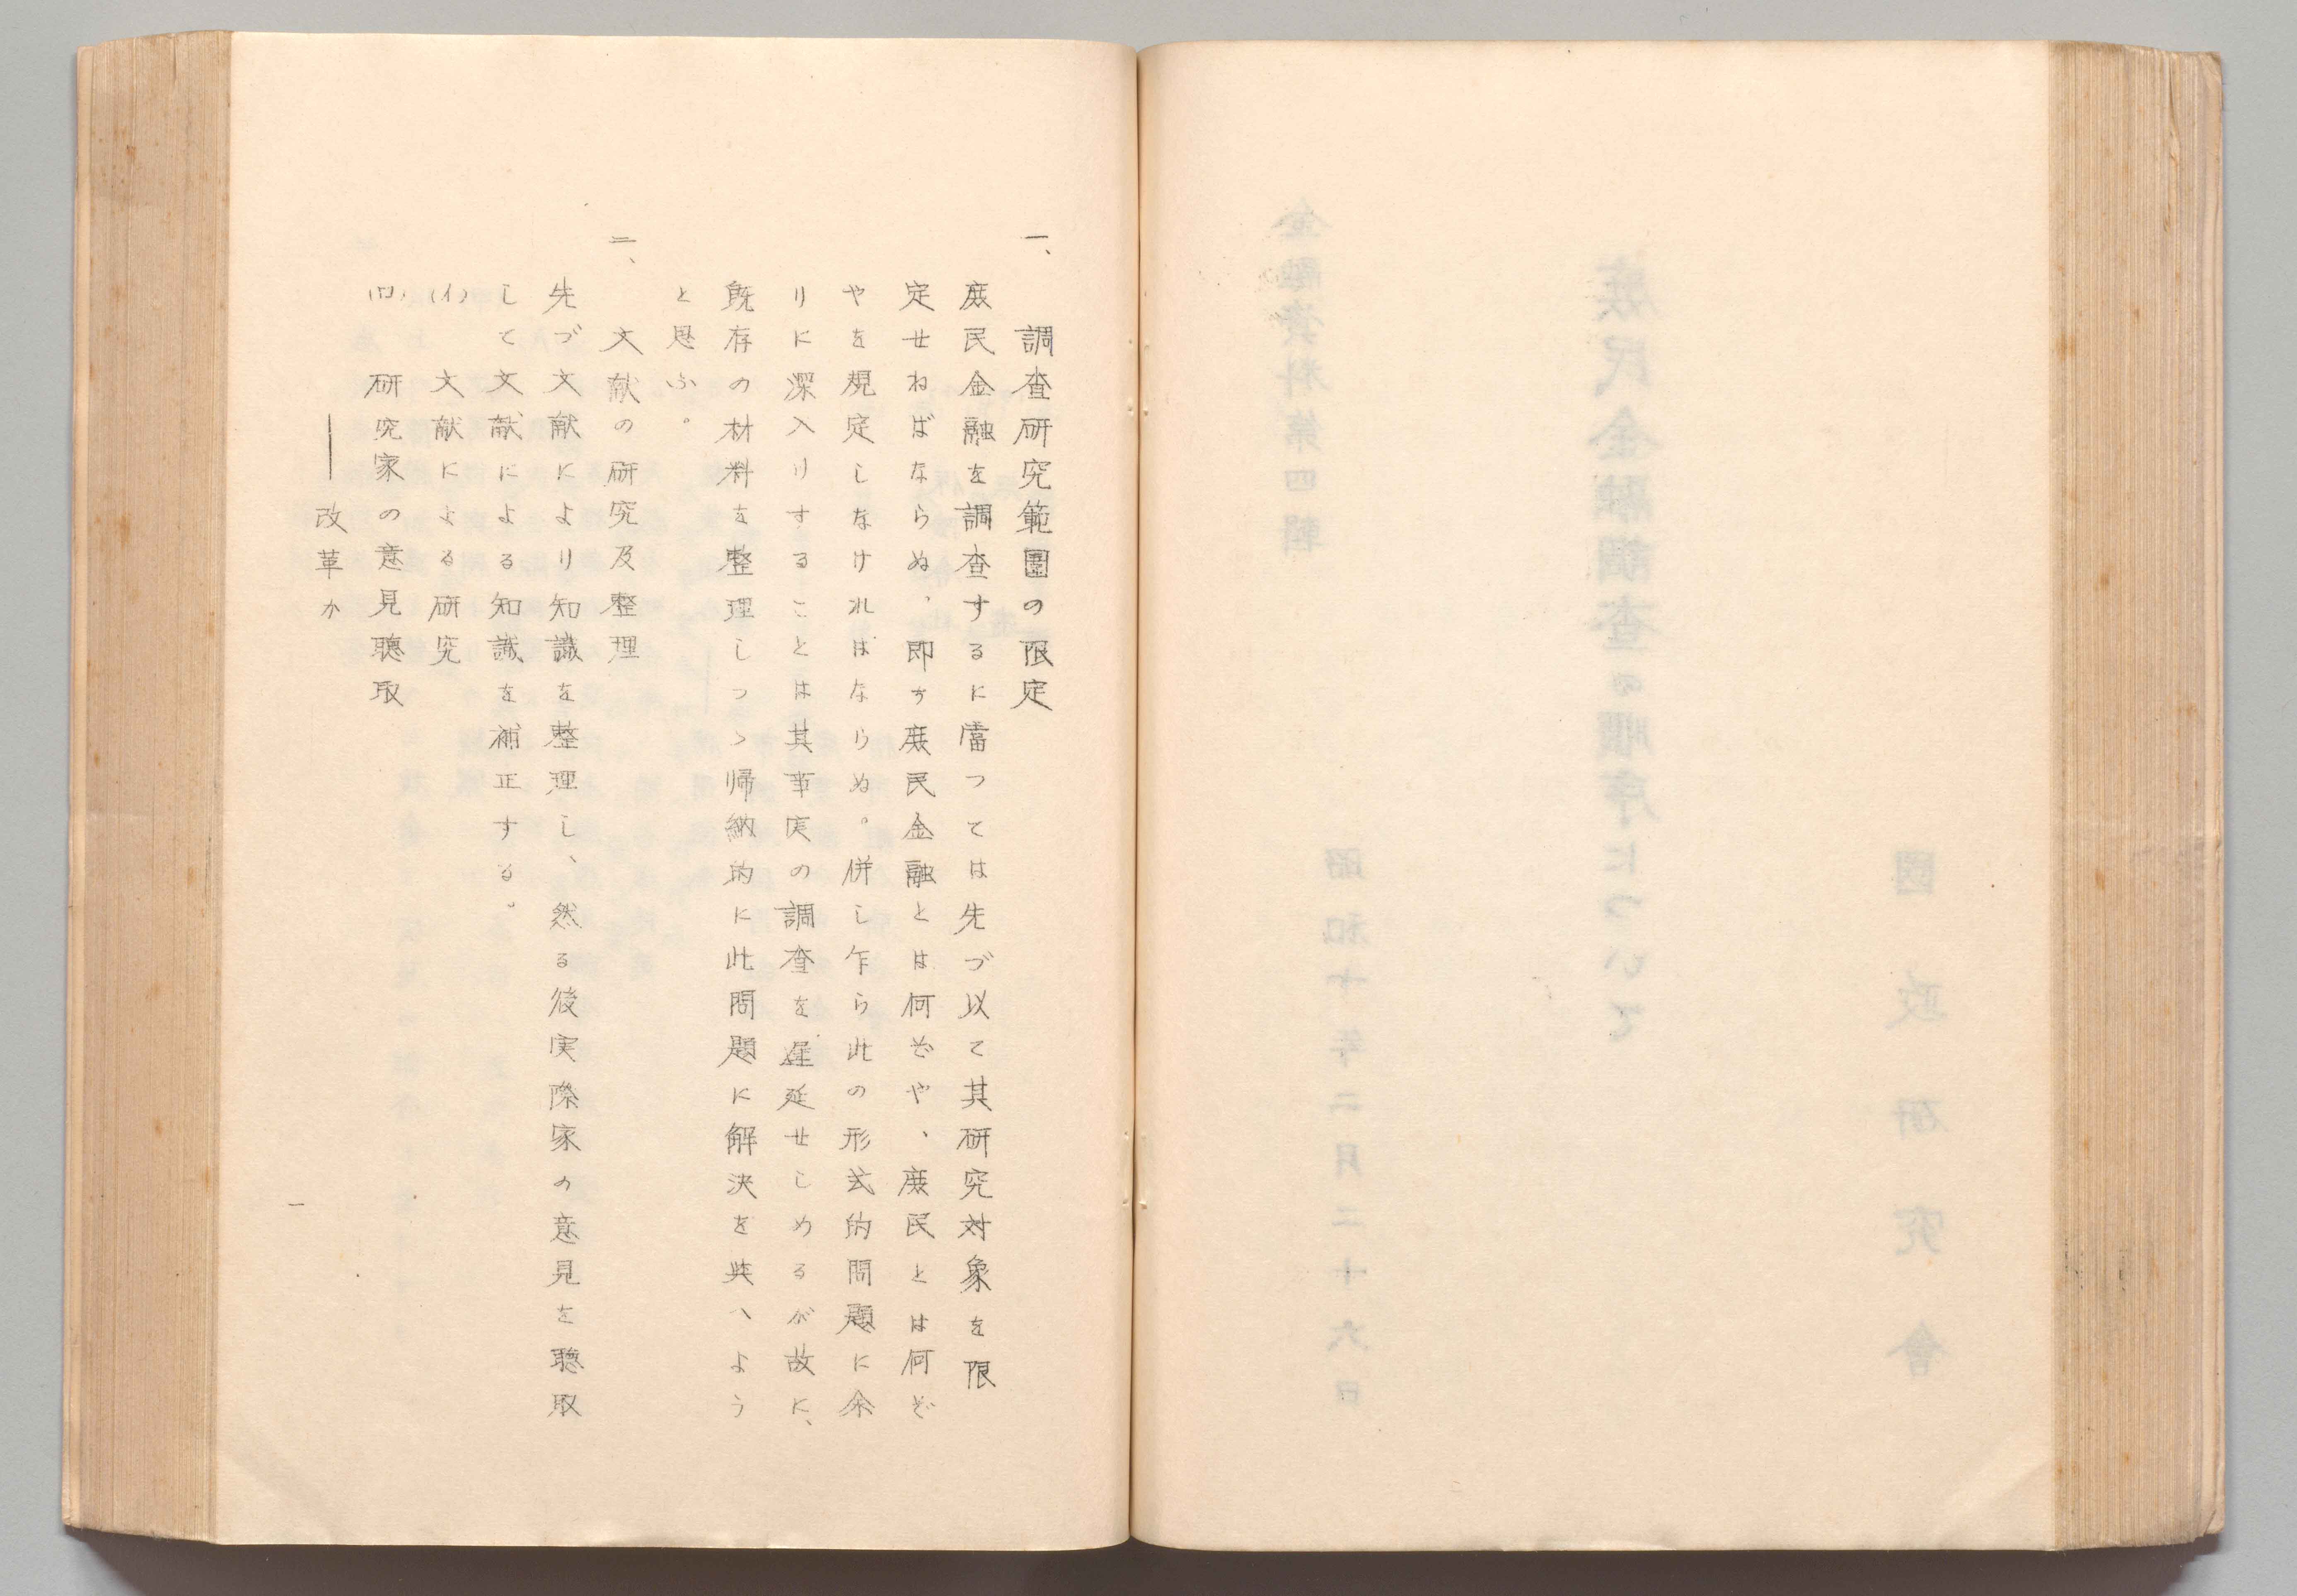 金融資料第四輯
昭和十年二月二十六日
庶民金融調査の順序について
國政研究會
一、調査研究範圍の限定
庶民金融を調査するに當つては先づ以て其研究対象を限
定せねばならぬ、即ち庶民金融とは何ぞや、庶民とは何ぞ
やを規定しなければならぬ。併し乍ら此の形式的問題に余
りに深入りすることは其事実の調査を遅延せしめるが故に、
既存の材料を整理しつゝ帰納的に此問題に解決を與へよう
と思ふ。
二、文献の研究及整理
先づ文献により知識を整理し、然る後実際家の意見を聴取
して文献による知識を補正する。
(イ)文献による研究
(ロ)研究家の意見聴取
――改革か
一